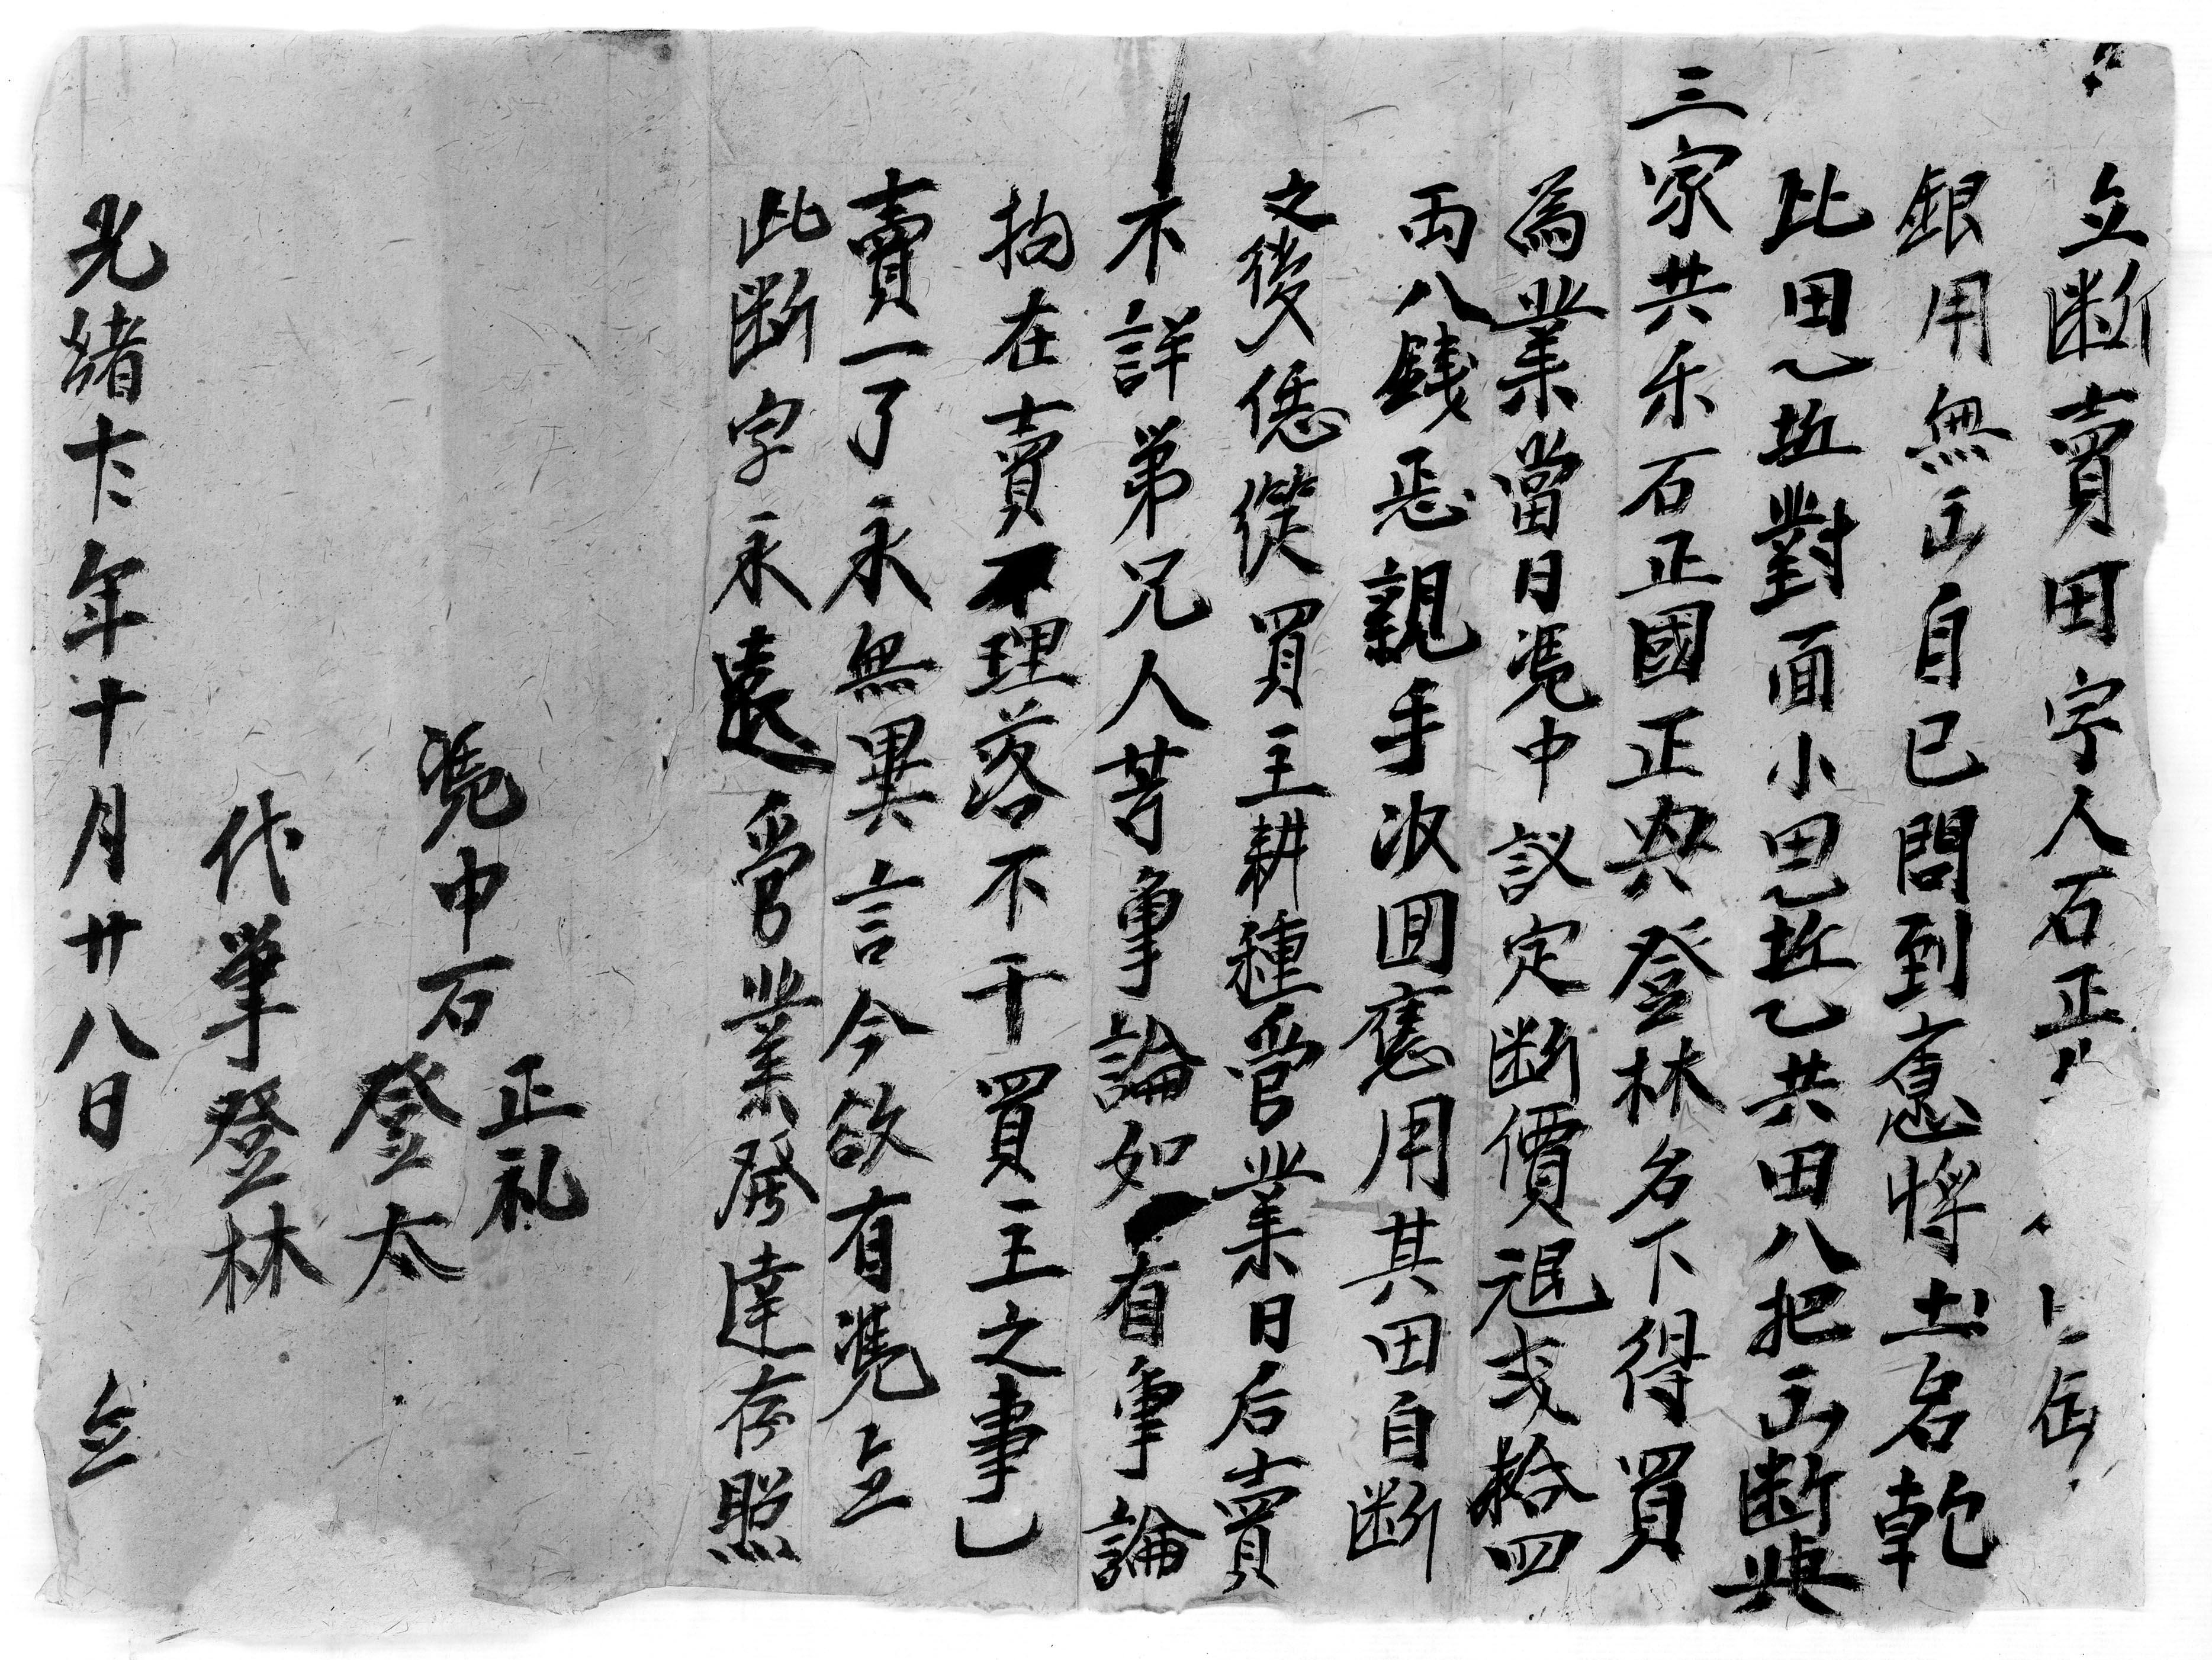 立断賣田字人石正
銀用無㞢自已問到愿将土名乾
比田乚坵對面小田乚坵乙共田八把㞢断與
三家共乐石正國正央登林名下得買
為業當日凴中議定断價迊弍拾四
両八錢悉親手汲囬應用其田自断
之後㤙從買主耕種管業日后賣
不詳弟兄人等事論如有事論
拘在賣理落不干買主之事乚
賣一了永無異言今欲有凴立
此断字永遠管業發達存照
凴中石 正礼
登太
代筆登林
光緒十年十月廿八日 立